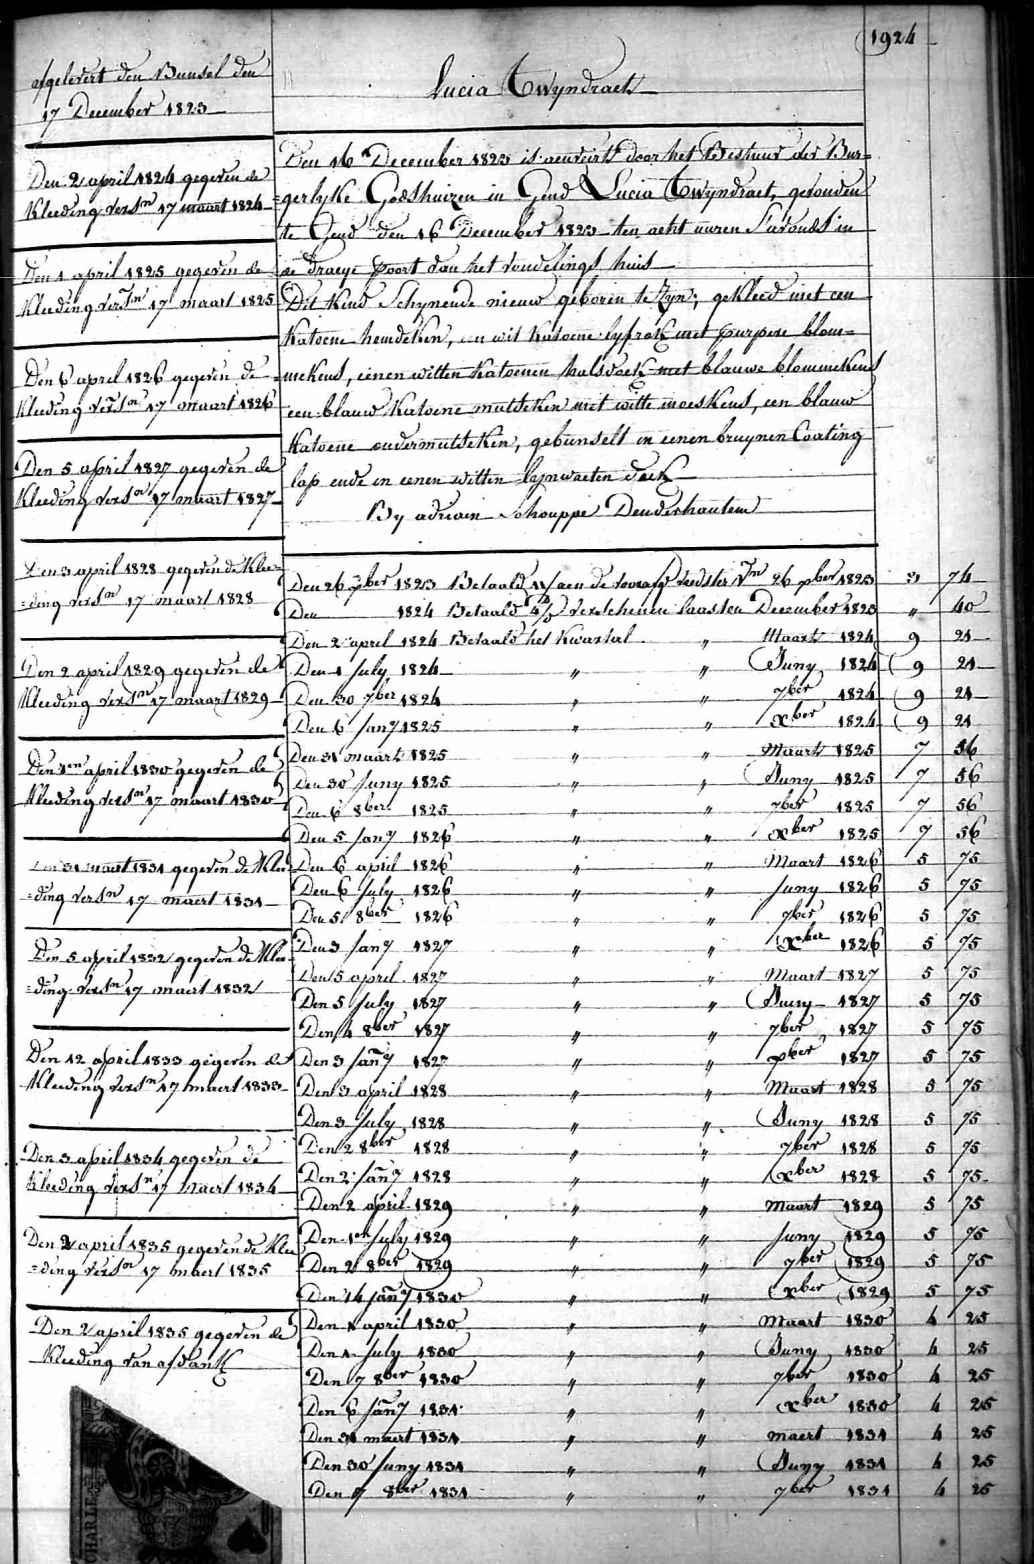 1924
Lucia Twyndraet
afgelevert den Bunsel den
17 December 1823
Den 2 april 1824 gegeven de
Kleeding versn 17 maart 1824
Den 1 april 1825 gegeven de
Kleeding versn 17 maart 1825
Den 6 april 1826 gegeven de
Kleeding versn 17 maart 1826
Den 5 april 1827 gegeven de
Kleeding versn 17 maart 1827
Den 3 april 1828 gegeven de Klee=
=ding versn 17 maart 1828
Den 2 april 1829 gegeven de
Kleeding versn 17 maart 1829
Den 1en april 1830 gegeven de
Kleeding versn 17 maart 1830
Den 31 maart 1831 gegeven de Klee
=ding versn 17 maert 1831
Den 5 april 1832 gegeven de Klee
=ding versn 17 maert 1832
Den 12 april 1833 gegeven de
Kleeding versn 17 maert 1833
Den 3 april 1834 gegeven de
Kleeding versn 17 maert 1834
Den 2 april 1835 gegeven de Klee
=ding versn 17 maert 1835
Den 2 april 1835 gegeven de
Kleeding van afdank
CHARLE
Den 16 December 1823 is aenveirt door het Bestuur der Bur=
=gerlyke Godshuizen in Gend Lucia Twyndraet, gevonden
te Gend den 16 December 1823 ten acht uuren s'avonds in
de draeye poort van het vondelings huis
Dit Kind Schynende nieuw geboren te zyn; gekleed met een
Katoene hemdeken, een wit Katoene lyfrok met purpere blom=
=mekens, eenen witten Katoenen halsdoek met blauwe blommekens
een blauw Katoene mutseken met witte moeskens, een blauw
Katoene ondermutseken, gebunselt in eenen bruynen Coating
lap ende in eenen witten lynwaeten doek
By adriaen Schouppe Denderhautem
Den 26 xber 1823 Betaald aen de voorafg Vedster Vn 26 xber 1823 3 74
Den 1824 Betaald verschenen laasten December 1823 " 40
Den 2 april 1824 Betaald het Kwartal " Maart 1824 9 21
Den 1 July 1824 " " Juny 1824 9 21
Den 30 7ber 1824 " " 7ber 1824 9 21
Den 6 Jany 1825 " " xber 1824 9 21
Den 31 maart 1825 " " Maart 1825 7 56
Den 30 Juny 1825 " " Juny 1825 7 56
Den 6 8ber 1825 " " 7ber 1825 7 56
Den 5 Jany 1826 " " xber 1825 7 56
Den 6 april 1826 " " Maart 1826 5 75
Den 6 July 1826 " " Juny 1826 5 75
Den 5 8ber 1826 " " 7ber 1826 5 75
Den 3 Jany 1827 " " xber 1826 5 75
Den 5 april 1827 " " Maart 1827 5 75
Den 5 July 1827 " " Juny 1827 5 75
Den 4 8ber 1827 " " 7ber 1827 5 75
Den 3 Jany 1827 " " xber 1827 5 75
Den 3 april 1828 " " Maart 1828 5 75
Den 3 July 1828 " " Juny 1828 5 75
Den 2 8ber 1828 " " 7ber 1828 5 75
Den 2 Jany 1828 " " xber 1828 5 75
Den 2 april 1829 " " maart 1829 5 75
Den 1en July 1829 " " Juny 1829 5 75
Den 2 8ber 1829 " " 7ber 1829 5 75
Den 14 Jany 1830 " " xber 1829 5 75
Den 1 april 1830 " " Maart 1830 4 25
Den 1 July 1830 " " Juny 1830 4 25
Den 7 8ber 1830 " " 7ber 1830 4 25
Den 6 Jany 1831 " " xber 1830 4 25
Den 31 maert 1831 " " maert 1831 4 25
Den 30 Juny 1831 " " Juny 1831 4 25
Den 17 8ber 1831 " " 7ber 1831 4 25